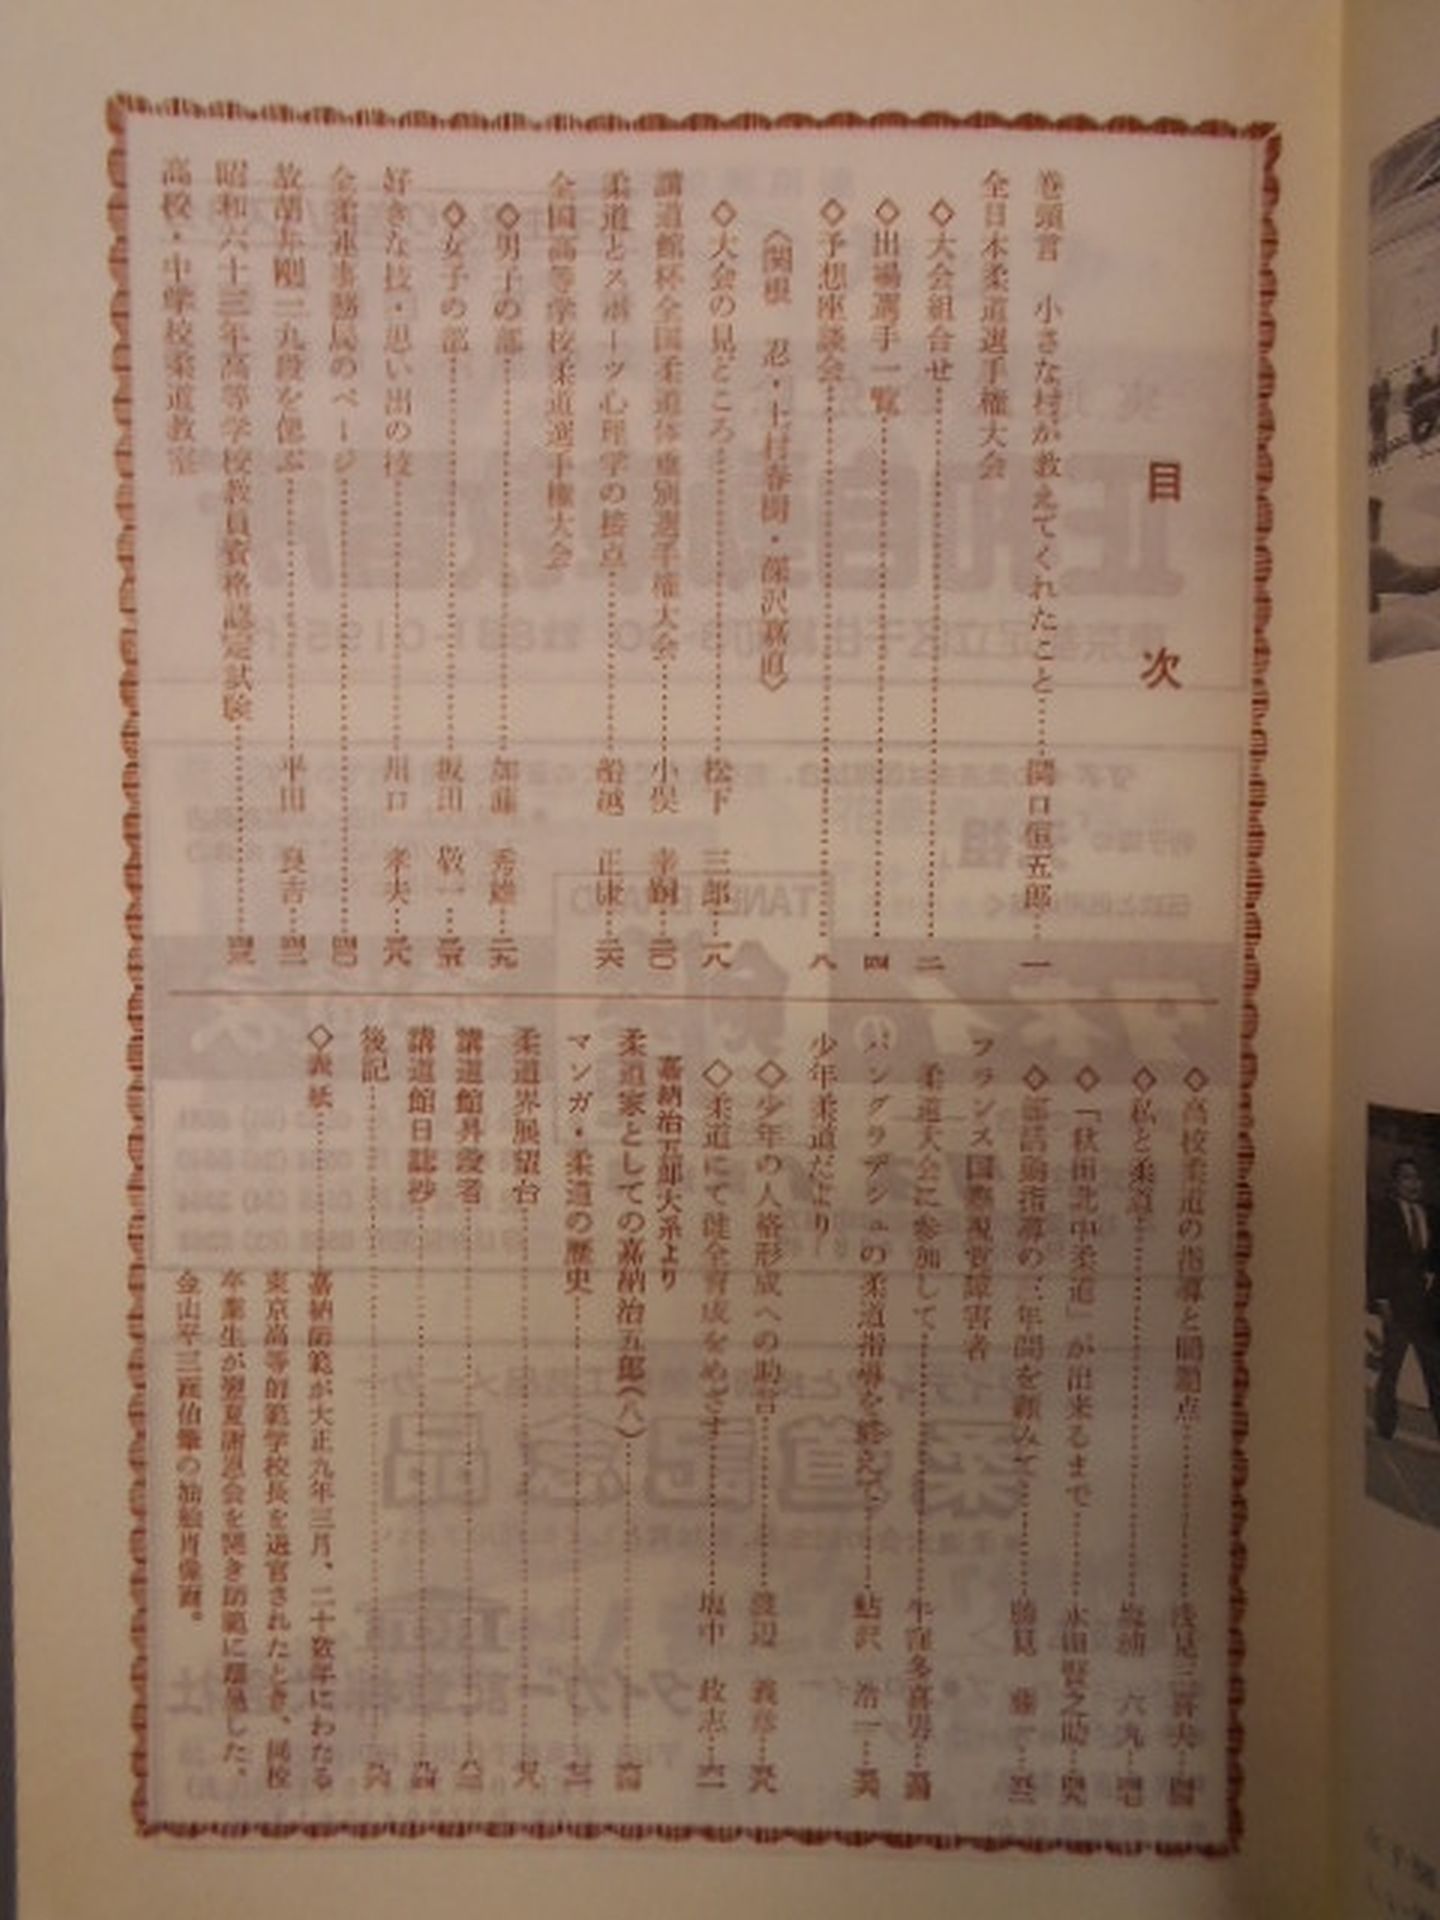 目次
巻頭言 小さな村が教えてくれたこと……関口恒五郎…一
全日本柔道選手権大会
◇大会組合せ……二
◇出場選手一覧……四
◇予想座談会……八
〈関根 忍・上村春樹・深沢嘉直〉
◇大会の見どころ……松下 三郎…一八
講道館杯全国柔道体重別選手権大会……小俣 幸嗣…二〇
柔道とスポーツ心理学の接点……船越 正康…二六
全国高等学校柔道選手権大会
◇男子の部……加藤 秀雄…二九
◇女子の部……坂田 敬一…三五
好きな技・思い出の技……川口 孝夫…三八
全柔連事務局のページ……四〇
故胡井剛一九段を偲ぶ……平田 良吉…四二
昭和六十三年高等学校教員資格認定試験……四三
高校・中学校柔道教室
◇高校柔道の指導と問題点……浅見三喜夫…四四
◇私と柔道……六丸…四七
◇「秋田北中柔道」が出来るまで……永田賢之助…四九
◇部活動指導の三年間を顧みて……
フランス国際視覚障害者
柔道大会に参加して……牛窪多喜男…五四
バングラデシュの柔道指導を終えて……鮎沢 浩一…五六
少年柔道だより
◇少年の人格形成への助言……渡辺 義彦…五八
◇柔道にて健全育成をめざす……塩中 政志…六一
嘉納治五郎大系より
柔道家としての嘉納治五郎（八）……六四
マンガ・柔道の歴史……七二
柔道界展望台……七八
講道館昇段者……八三
講道館日誌抄……九四
後記……九六
◇表紙……嘉納師範が大正九年三月、二十数年にわたる
東京高等師範学校長を退官されたとき、同校
卒業生が謝恩会を開き師範に贈呈した、
金山平三画伯筆の油絵肖像画。